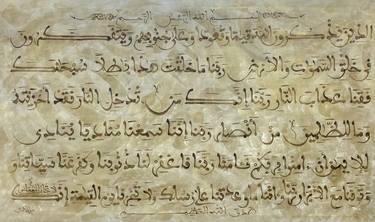 بسم الله الرحمن الرحيم
الذين يذكرون الله قياما وقعودا وعلى جنوبهم ويتفكرون
في خلق السموات والأرض ربنا ما خلقت هذا بطلا سبحنك
فقنا عذاب النار ربنا إنك من تدخل النار فقد أخزيته
وما للظلمين من أنصار ربنا إننا سمعنا مناديا ينادي
للإيمن أن آمنوا بربكم فآمنا ربنا فاغفر لنا ذنوبنا وكفر عنا سيئاتنا و
توفنا مع الأبرار ربنا وآتنا ما وعدتنا على رسلك ولا تخزنا يوم القيمة إنك
لا تخلف الميعاد
صدق الله العظيم